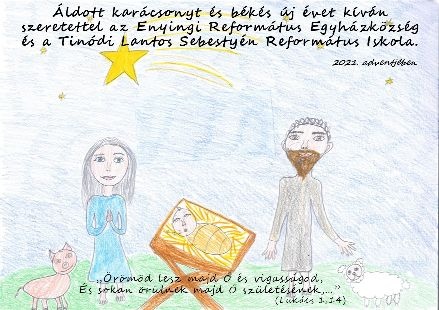 Áldott karácsonyt és békés új évet kíván
szeretettel az Enyingi Református Egyházközség
és a Tinódi Lantos Sebestyén Református Iskola.
2021. adventjében
„Örömöd lesz majd Ő és vigasságod,
És sokan örülnek majd Ő születésének,..."
(Lukács 1,14)